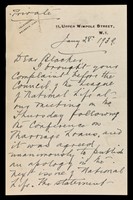 Private
11, UPPER WIMPOLE STREET,
W.1.
Jany 28th 1929
Dear Blacker,
I brought your
Complaint before the
Council of the League
of National Life, at
our meeting on the
Thursday following
the Conference on
Marriage Laws, and
it was agreed,
unanimously to publish
an apology in the
next issue of National
Life. The statement